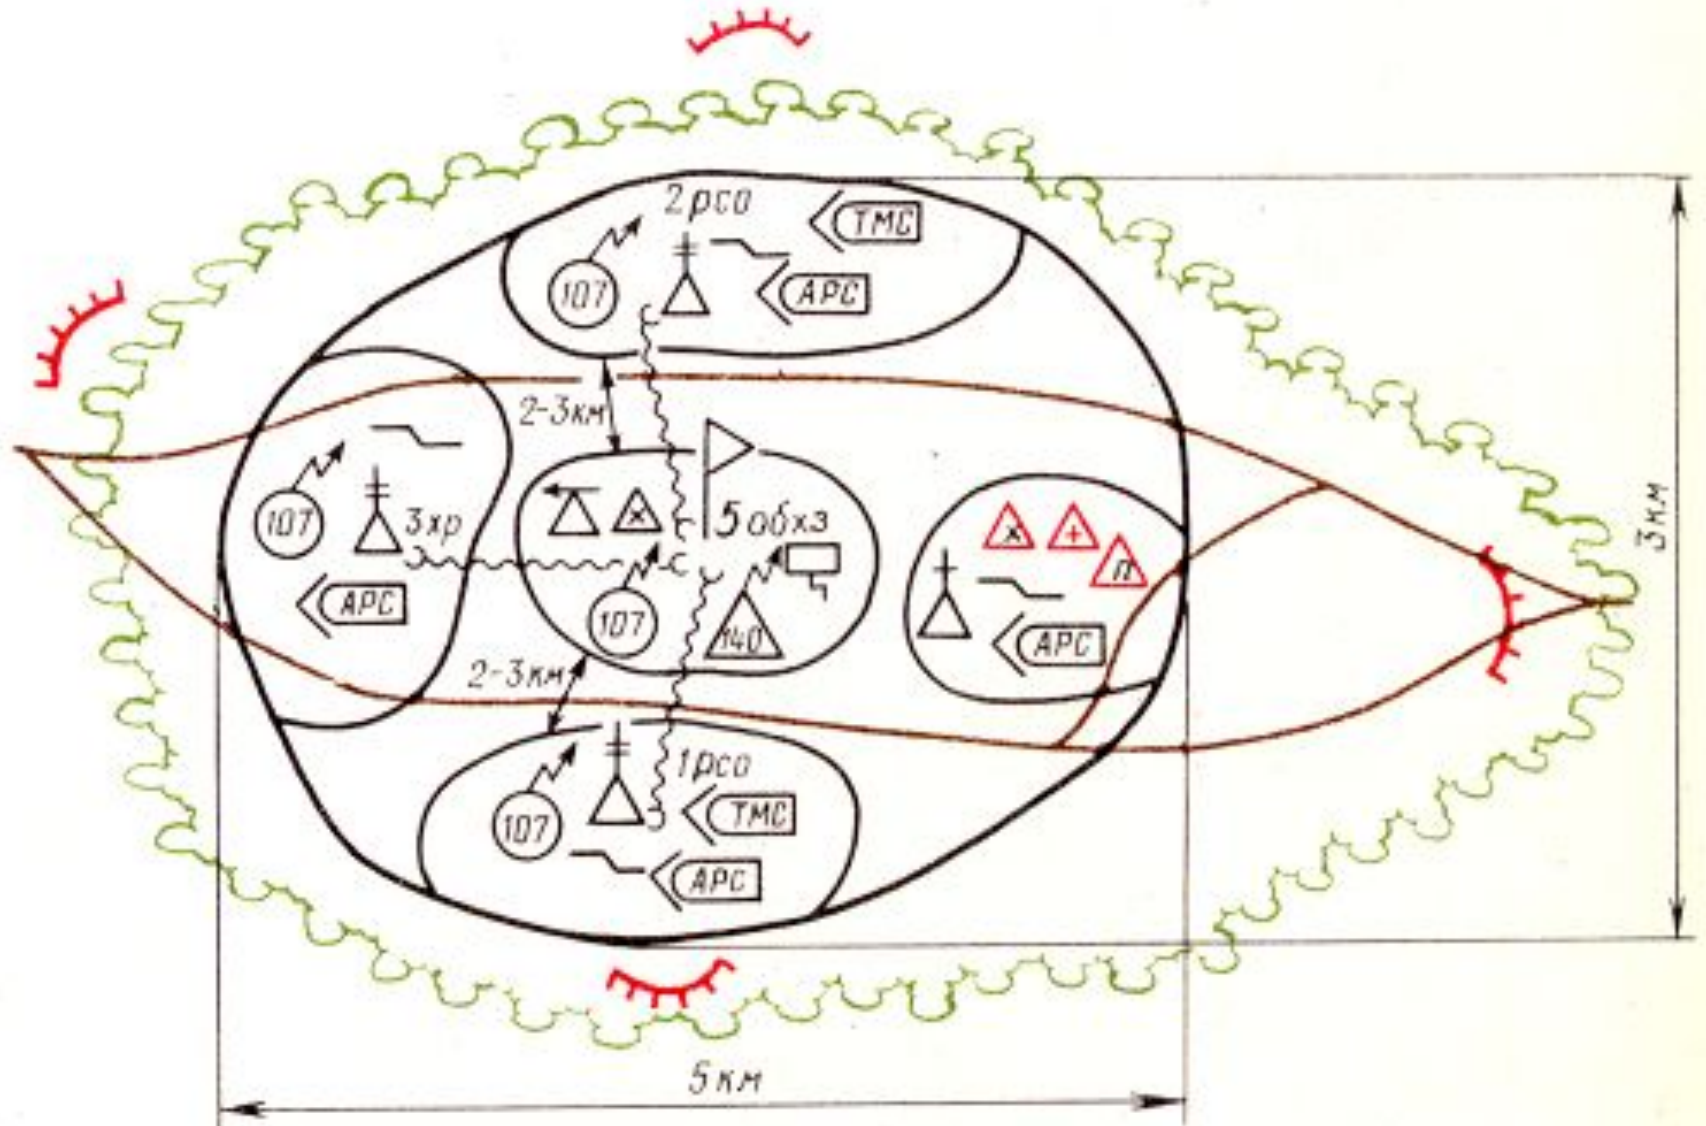 2 рсо
ТМС
107
АРС
2-3км
107
3хр
АРС
5 обхз
107
140
х
+
п
АРС
2-3км
1 рсо
107
ТМС
АРС
3 км
5 км